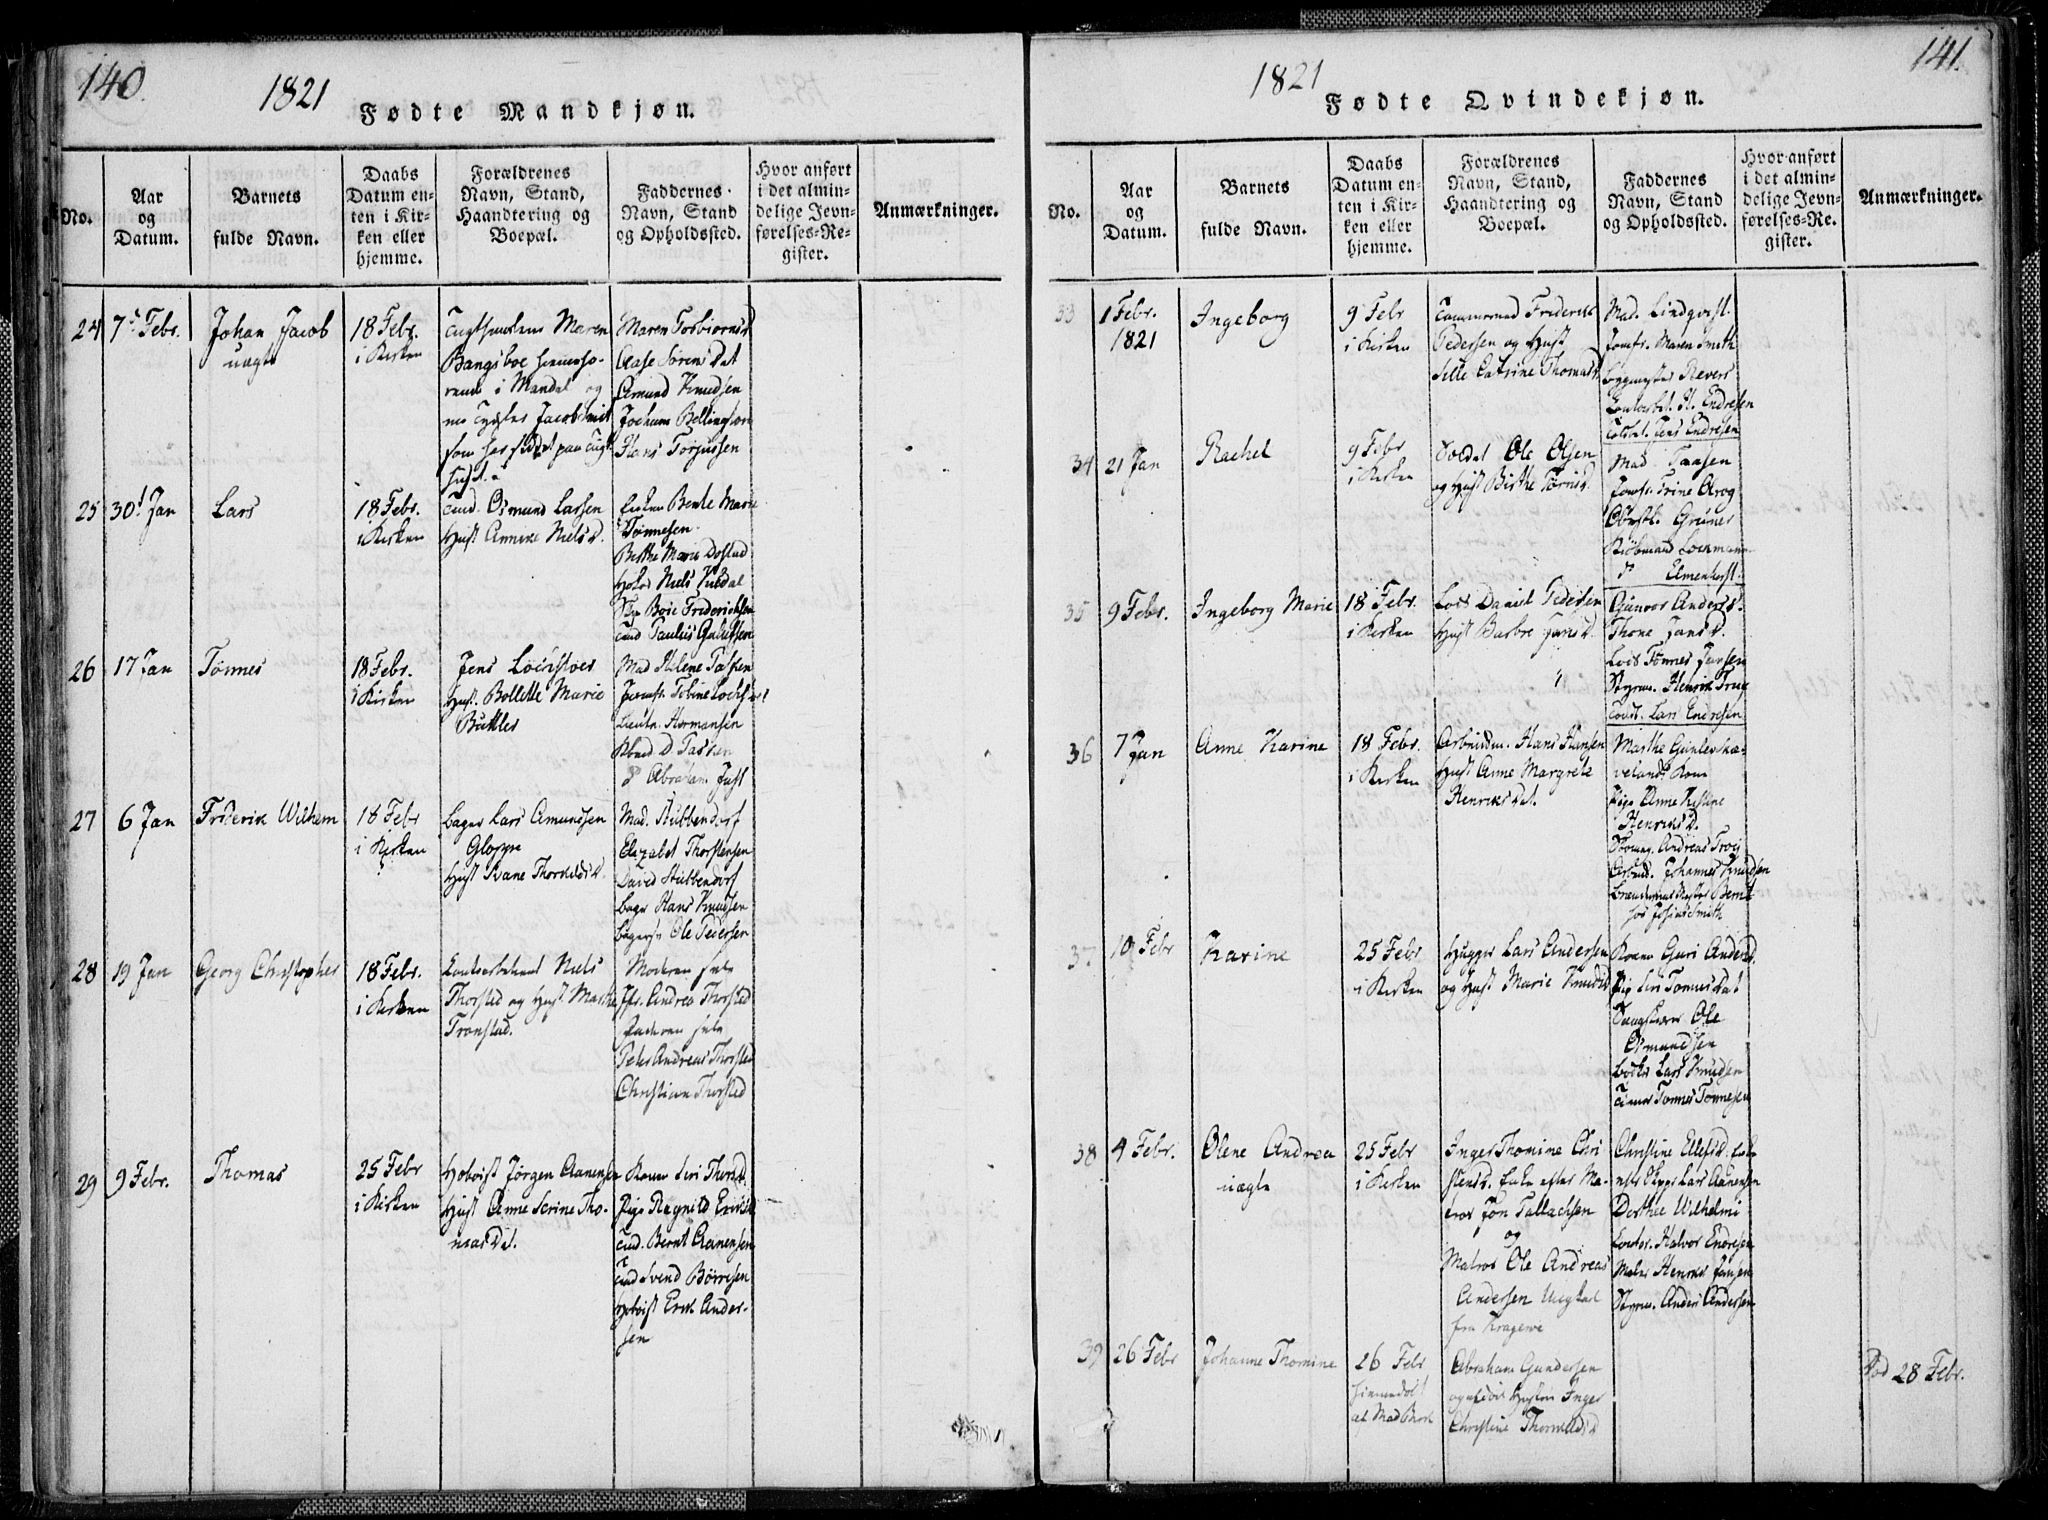 140.
1821
Fødte Mandkjøn.
No.
Aar
og
Datum.
Barnets
fulde Navn.
Daabs
Datum en-
ten i Kir-
ken eller
hjemme.
Forældrenes
Navn, Stand,
Haandtering og
Boepæl.
Faddernes
Navn, Stand
og Opholdssted.
Hvor anført
i det almin-
delige Jevn-
førelses-Re-
gister.
Anmærkninger.
24
7de Febr.
Johan Jacob
uægte
18 Febr.
i Kirken
Maren
Bangsboe
i Mandal og
Jacob
som her paa Tugt
huset
Maren Torbiørnsd
Aase Sørens Dat
Amund Knudsen
Jochum
Hans Torjussen
25
30t Jan
Lars
18 Febr.
i Kirken
Osmund Larsen
Hust Anneke Nielsd.
Enken Bente Marie
Tønnesen
Berthe Marie
Niels
Boie Frderichsen
26
17 Jan
Tønnes
18 Febr.
i Kirken
Jens Lochstoer
Hust. Bollette Marie
Büttler
Mad Helene Tassen
Jomfr. Tobine
Lieutn. Hermansen
D Tassen
do Abraham Juell
27
6 Jan
Friderik Wilhem
18 Febr
i Kirken
Bager Lars Amundsen
Gloppe
Hust Svane Thorkildsd.
Mad. Stubbendorf
Elezabet Thorstensen
David Stubbendorf
Bager Hans Knudsen
Ole Pedersen
28
19 Jan
Georg Christopher
18 Febr.
i Kirken
Niels
Thorsted og Hust. Marthe
Tronstad.
Moderen selv
Jfr. Andrea Thorsted
Faderen selv
Peter Andreas Thorsted
Christian Thorsted
29
9 Febr.
Thomas
25 Febr
i Kirken
Jørgen Aanensen
Hust Anne Serine Tho-
mas Dt.
Konen Siri
Pige Ragnild
Bernt Aanensen
Svend Børresen
Erik Ander-
sen
141.
1821
Fødte Qvindekjøn.
No.
Aar
og
Datum.
Barnets
fulde Navn.
Daabs
Datum en-
ten i Kir-
ken eller
hjemme.
Forældrenes
Navn, Stand,
Haandtering og
Boepæl.
Faddernes
Navn, Stand
og Opholdssted.
Hvor anført
i det almin-
delige Jevn-
førelses-Re-
gister.
Anmærkninger.
33
1 Febr.
1821
Ingeborg
9 Febr
i Kirken
Tømmermd Friderik
Pedersen og Hust
Sille Catrine Thomasd
Mad. Lindqvist.
Jomfr. Maren Smith
Revers
H. Endresen
Jens Endresen
34
21 Jan
Rachel
9 Febr
i Kirken
Soldat Ole Olsen
og Hust Birthe Tørrisd.
Mad. Tansen
Jomfr. Trine Olrog
Grüner
Kiøbmand Lochmann
do Elmenhorst.
35
9 Febr.
Ingeborg Marie
18 Febr.
i Kirken
Lods Daniel Pedersen
Hust Barbre Jansd.
Gunvor Andersd.
Thone Jansd.
Lods Tønnes Jansen
Styrm. Henrik
Lars Endresen
36
7 Jan
Anne Karine
18 Febr.
i Kirken
Arbeidsm. Hans Hansen
Hust Anne Margrete
Henriks Dt.
Marthe
Kone
Pige Anne
Henriksd.
Andreas
Johannes Knudsen
Bernt
Smith
37.
10 Febr
Karine
25 Febr
i Kirken
Hugger Lars Andersen
og Hust Marie Knudsd
Konen Guri Andersd.
Pige Siri Tønnes Dat
Ole
Osmundsen
Bødker Lars Knudsen
Tønnes Tønnesen
38
4 Febr.
Olene Andrea
uægte
25 Febr
i Kirken
Inger Thomine Chri
stensd. Enke efter Ma-
tros Jon Tallachsen
og
Matros Ole Andreas
Andersen Ungkarl
fra Kragerøe
Christine Ellefsd. Enke
efter Skipper Lars Aanensen
Dorthee Wilhelmi
Halvor Endresen
Maler Henrik Jansen
Styrm. Anders Andersen
39
26 Febr
Johanne Thomine
26 Febr
hiemmedøbt
af Mad
Abraham Gundersen
og Hustru Inger
Christine Thorkildsd
Død 28 Febr.